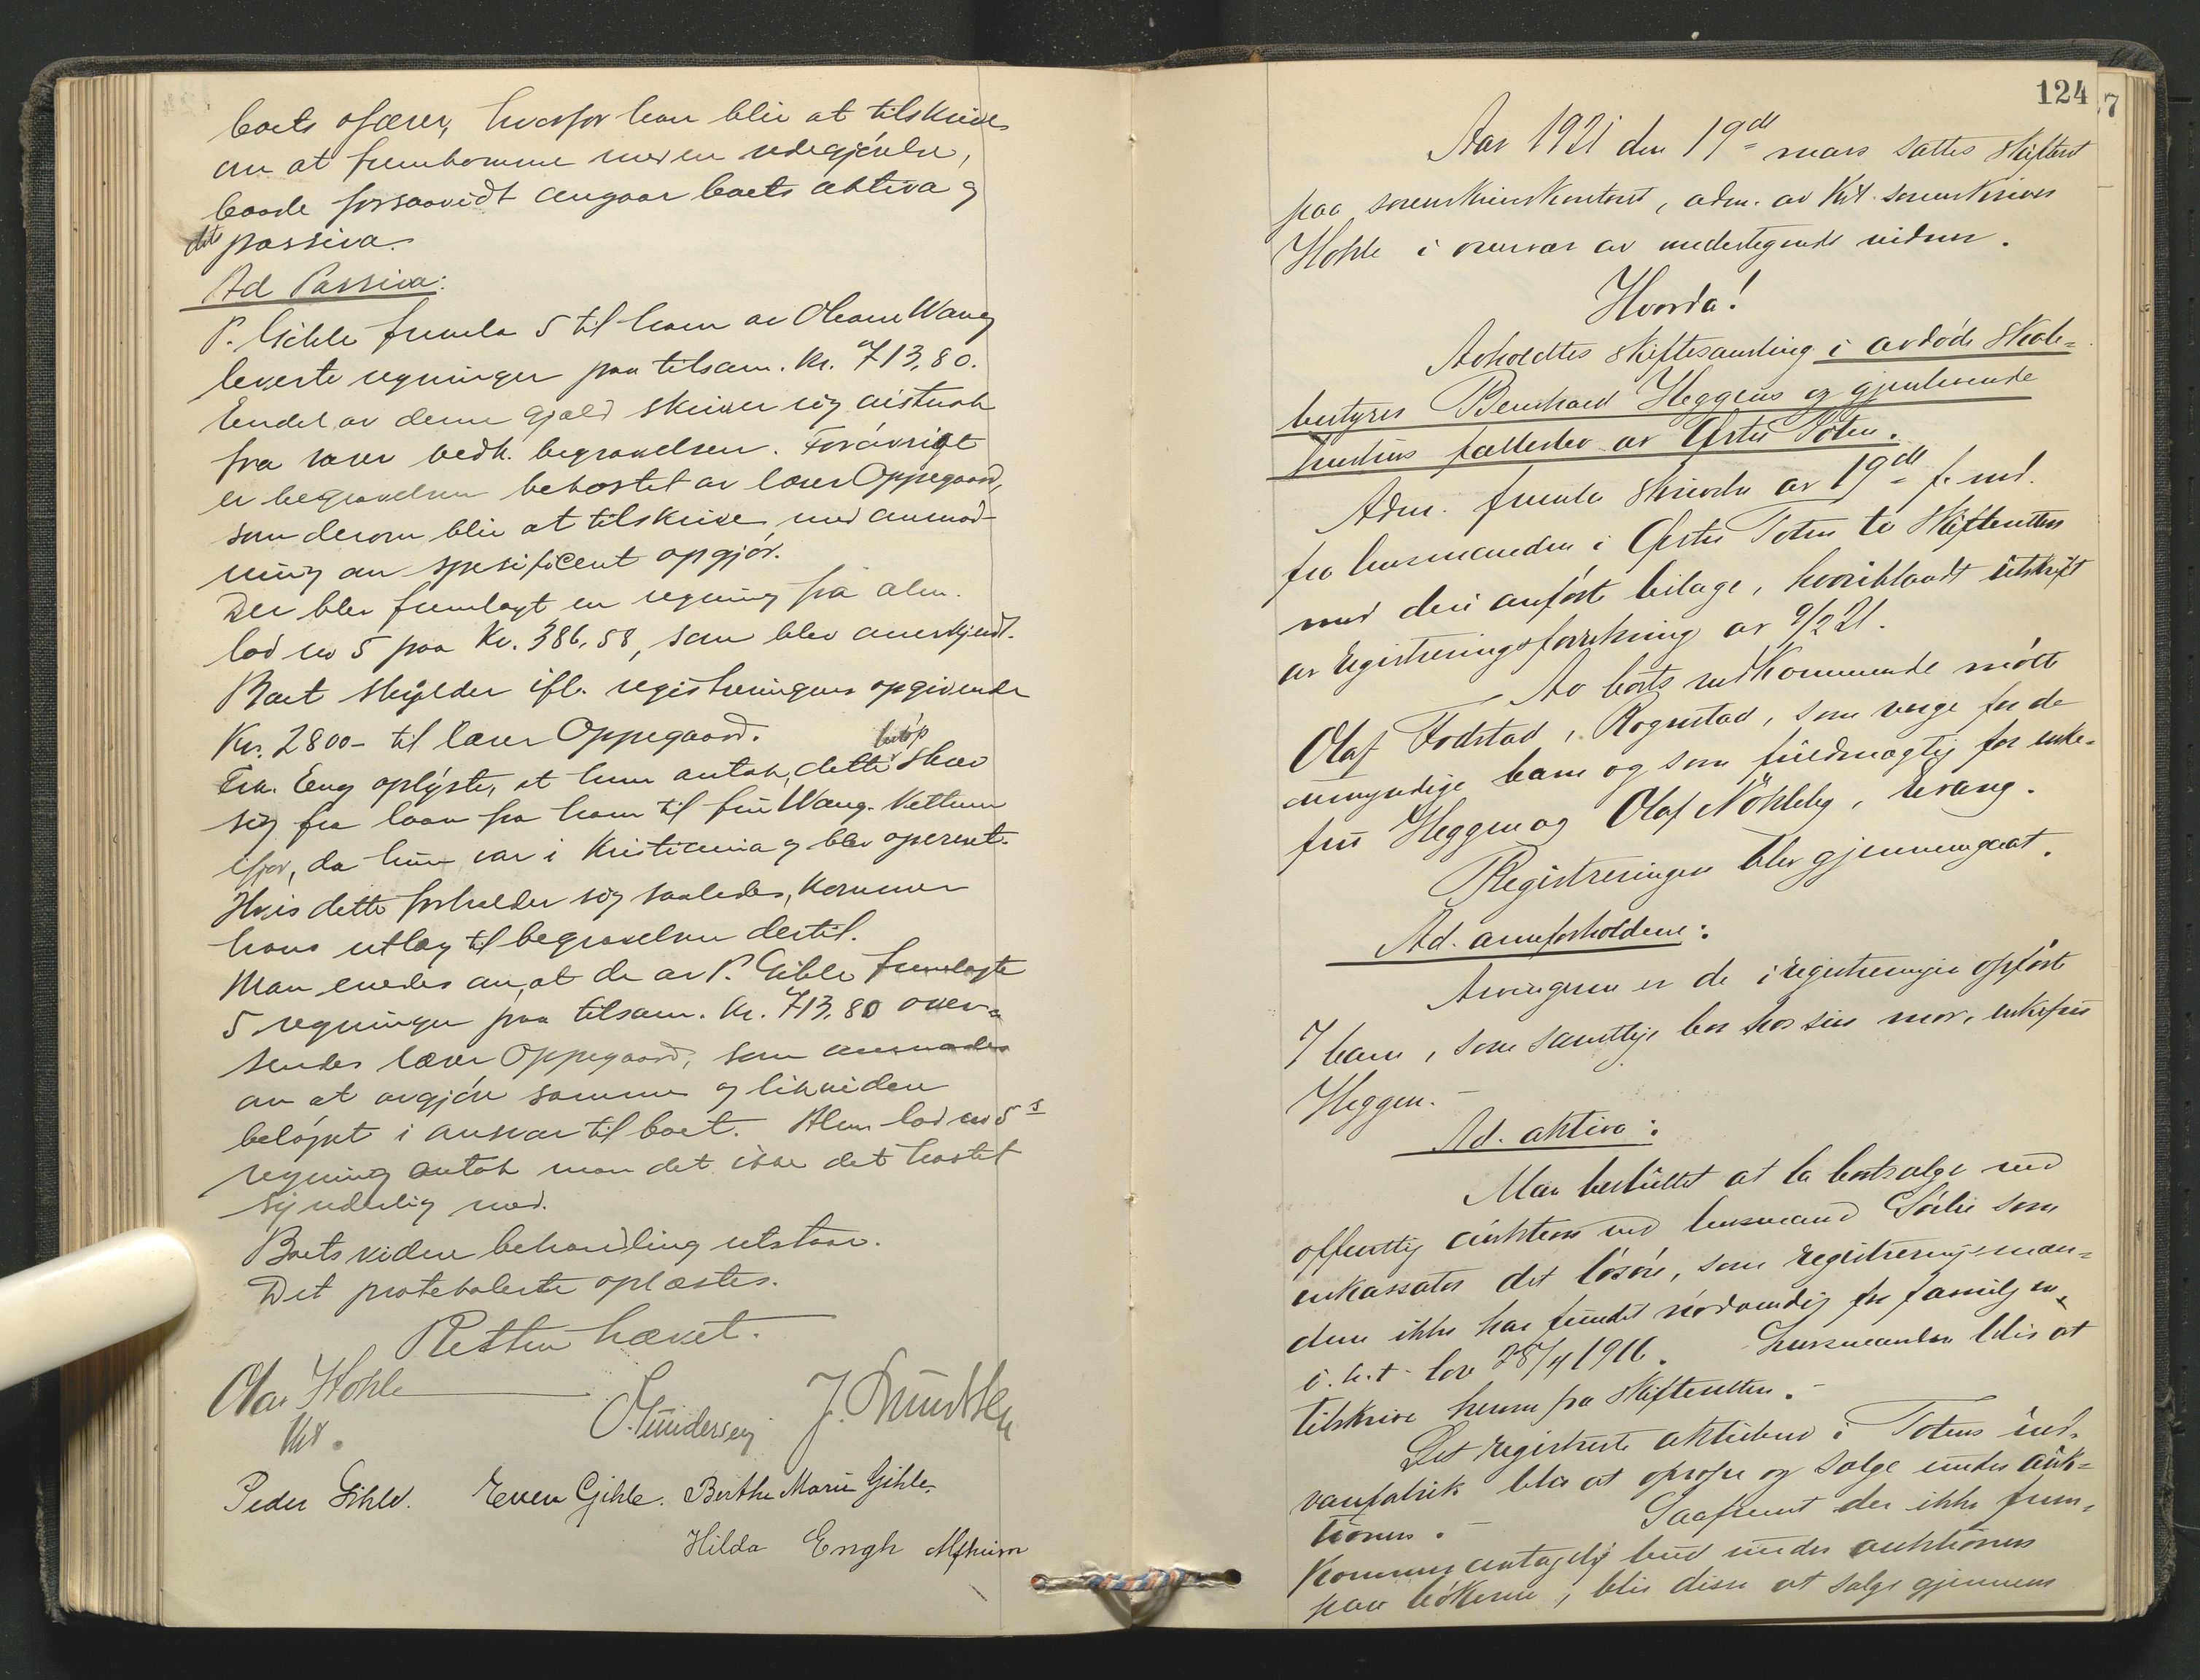 boets ofærer, hvorfor han blir at tilskrives
om at fremkomme med en redegjörelse,
baade forsaavidt angaar boets aktiva og
dets passiva.
Ad Passiva:
P. Gihle fremla 5 til ham av Oham Wang
leverte regninger paa tilsam. kr. 713,80.
Endel av denne gjæld skriver sig distrak
fra varer vedk. begravelsen. Forövrigt
er begravelsen bekostet av lærer Oppegaard,
som derom blir at tilskrive med anmod-
ning om spesificert opgjör.
Der blev fremlagt en regning fra alm.
lod no 5 paa Kr. 386,58, som blev anerkjendt.
Boet skylder ifl. registreringens opgivende
Kr. 2800- til lærer Oppegaard.
Frk. Eng oplyste, at hun antok, dette belöp skrev
sig fra laan fra ham til fru Wang. Vettern
ifjor, da hun var i Kristiania og blev operert.
Hvis dette forholder sig saaledes, kommer
hans utlæg til begravelsen dertil.
Man enedes om, at de av P. Gihle fremlagte
5 regninger paa tilsam. kr. 713,80 over-
sendes lærer Oppegaard, som anmodes
om at avgjöre samme og likvidere
belöpet i ansvar til boet. Alm. lod no 5s
regning antok man det ikke det hastet
synderlig med.
Boets videre behandling utstaar.
Det protokolerte oplæstes.
Retten hævet.
Olav Hohle
Kst.
O. Gundersen J. Knudsen
Peder Gihle. Even Gihle. Berthe Marie Gihle.
Hilda Engh
124
7
Aar 1921 den 19de mars sattes skifteret
paa sorenskriverkontoret, adm. av Kst. sorenskriver
Hohle i overvær av undertegnede vidner.
Hvorda!
Avholdtes skiftesamling i avdöde skole-
bestyrer Bernhard Heggens og gjenlevende
hustrus fællesbo av Östre Toten.
Adm. fremla skrivelse av 19de f. md.
fra lensmanden i Östre Toten to Skifteretten
med deri anförte bilage, hvoriblandt utskrift
av registreringsforretning av 9/2 21.
Av boets vedkommende mötte
Olaf Fodstad, Rognstad, som verge for de
umyndige barn og som fuldmægtig for enke-
fru Heggen og Olaf Nökleby, Evang.
Registreringen blev gjennemgaat.
Ad. arveforholdene:
Arvingerne er de i registreringen opförte
7 barn, som samtlige bor hos sin mor, enkefru
Heggen. -
Ad. aktiva:
Man besluttet at la bortsælge ved
offentlig auktion ved lensmand Sörlie som
inkassator det lösöre, som registreringsmæn-
dene ikke har fundet nödvendig for familjen,
i. h. t. lov 28/4 1916. Lensmanden blir at
tilskrive herom fra Skifteretten. -
Det registrerte aktiebrev i Totens uld-
varefabrik blir at oprope og sælge under auk-
tionen. - Saafremt der ikke frem-
kommer antagelig bud under auktionen
paa bökerne, blir disse at sælge gjennem